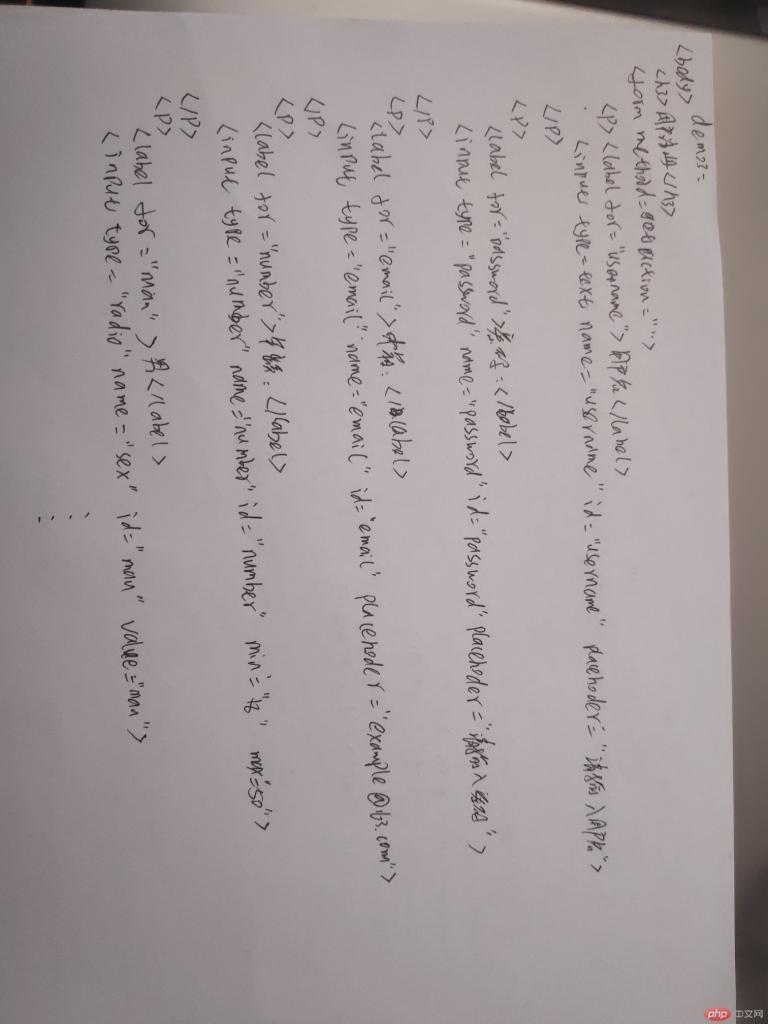 demo3:
<body>
<h3>用户注册</h3>
<form method=get action="">
<p><label for="username">用户名</label>
<input type=text name="username" id="username" placehoder="请输入用户名">
</p>
<p>
<label for="password">密码:</label>
<input type="password" name="password" id="password" placehoder="请输入密码">
</p>
<p>
<label for="email">邮箱:</label>
<input type="email" name="email" id="email" placehoder="example@163.com">
</p>
<p>
<label for="number">年龄:</label>
<input type="number" name="number" id="number" min="18" max="50">
</p>
<p>
<label for="man">男</label>
<input type="radio" name="sex" id="man" value="man">
php 中文网